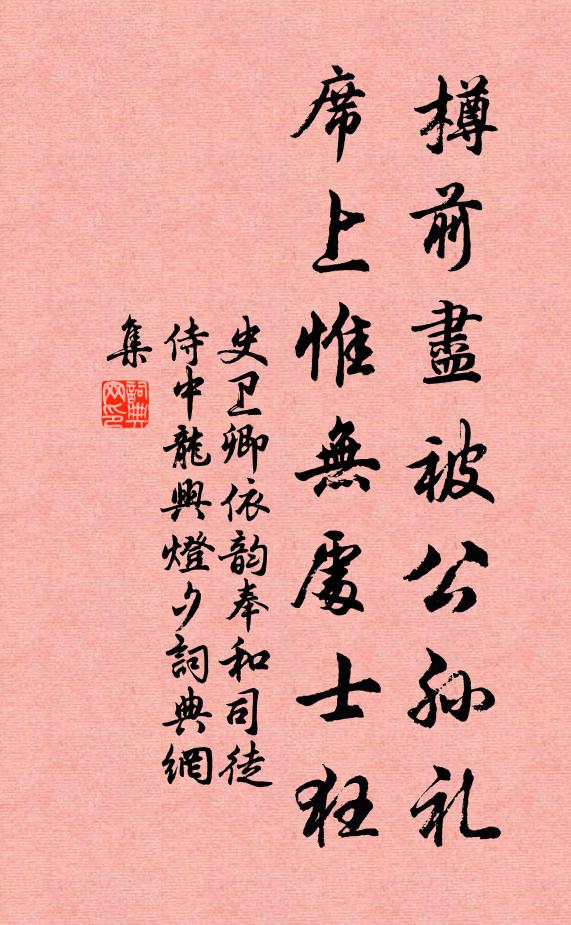 樽前盡被公孙礼
席上惟無處士狂
史卫卿依韵奉和司徒
侍中龍興燈夕詞典網
集
詞典
网印